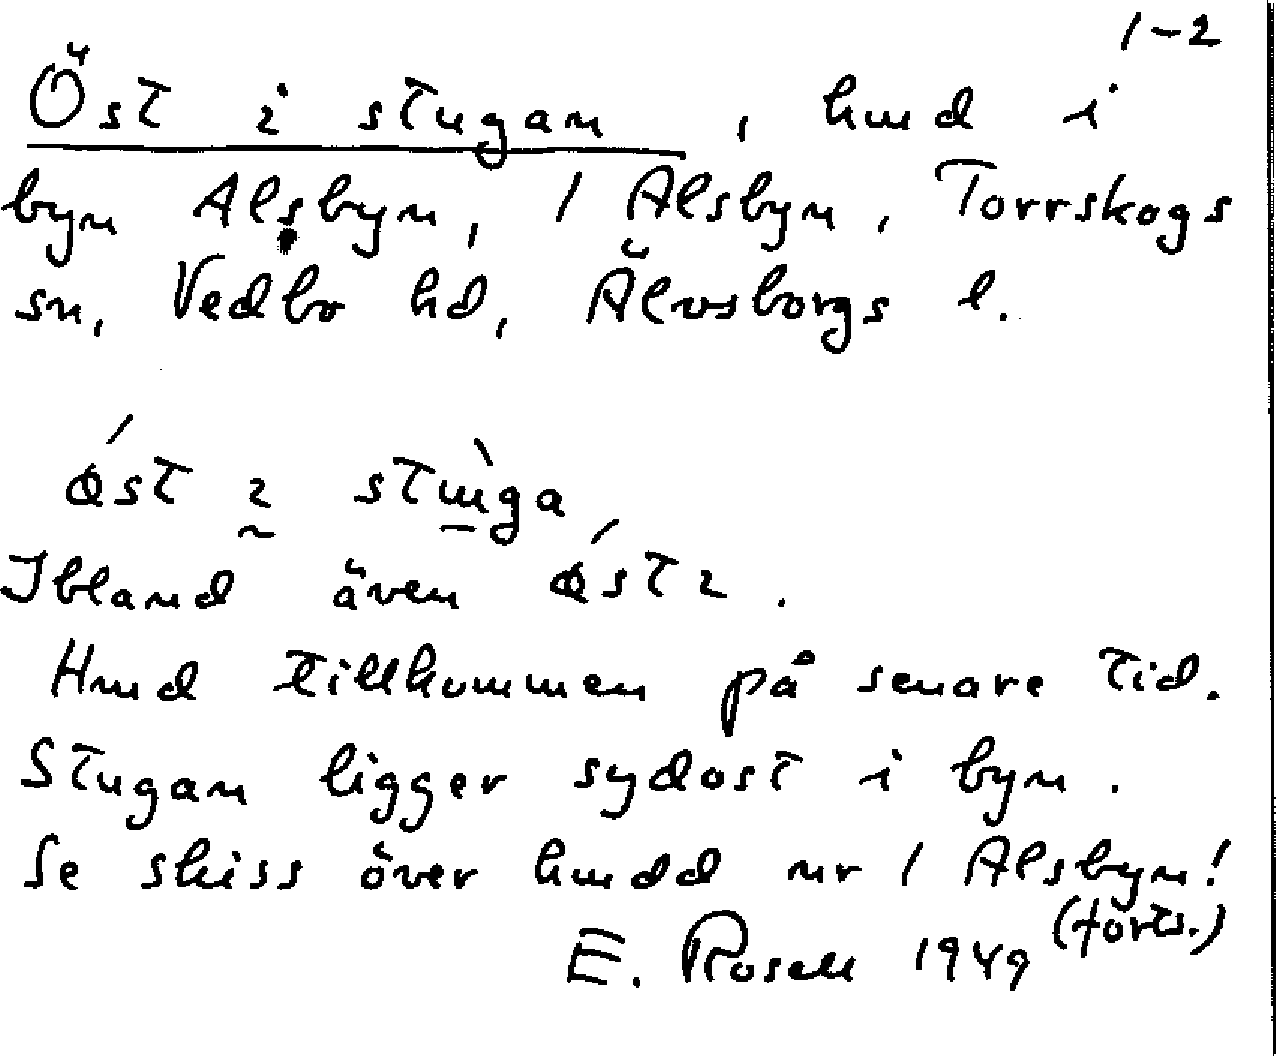 1-2
Öst i stugan, hmd i
byn Alsbyn, 1 Alsbyn, Torrskogs
sn, Vedbo hd, Älvsborgs l.
Ibland även
Hmd tillkommen på senare tid.
Stugan ligger sydost i byn.
Se skiss över hmdd nr 1 Alsbyn!
(forts.)
E. Rosell 1949